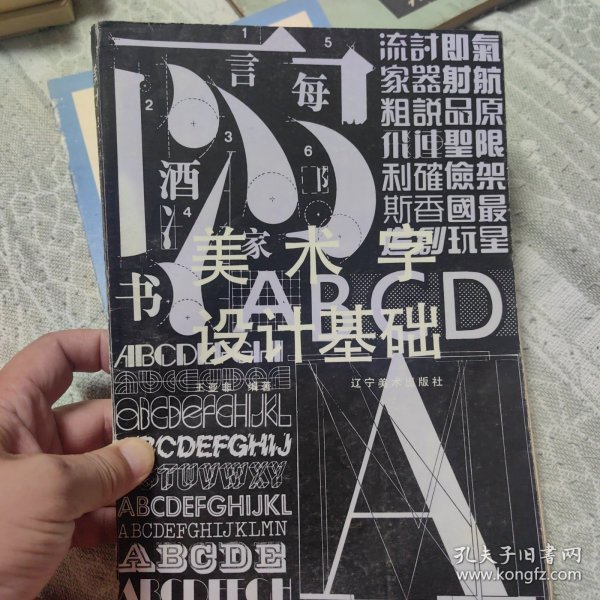 1
5
言
每
2
3
6
酒
4
家
书
流討即氣
家器射航
粗説品原
飛連聖限
利確儉架
斯香國最
創玩星
美术字
ABCD
设计基础
编著
辽宁美术出版社
ABCDEFGHIJKL
ABCDEFGHIJ
STUVWXY
ABCDEFGHIJKL
ABCDEFGHIJKLMN
ABCDE
ABCDEFGH
A
孔夫子旧书网
www.kongfz.com